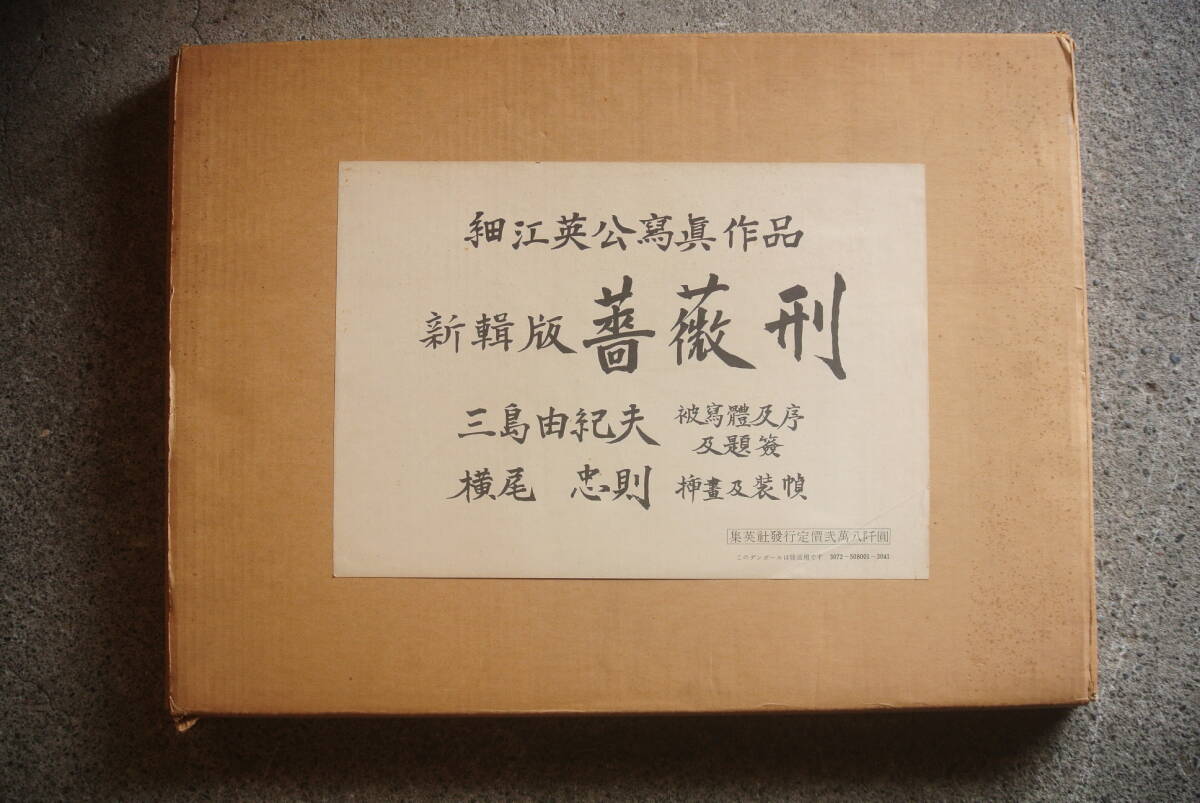 細江英公寫眞作品
新輯版 薔薇刑
三島由紀夫 被寫體及序
及題簽
横尾 忠則 挿畫及装幀
集英社發行定價弐萬八阡圓
このダンボールは輸送用です 3072-508001-3041